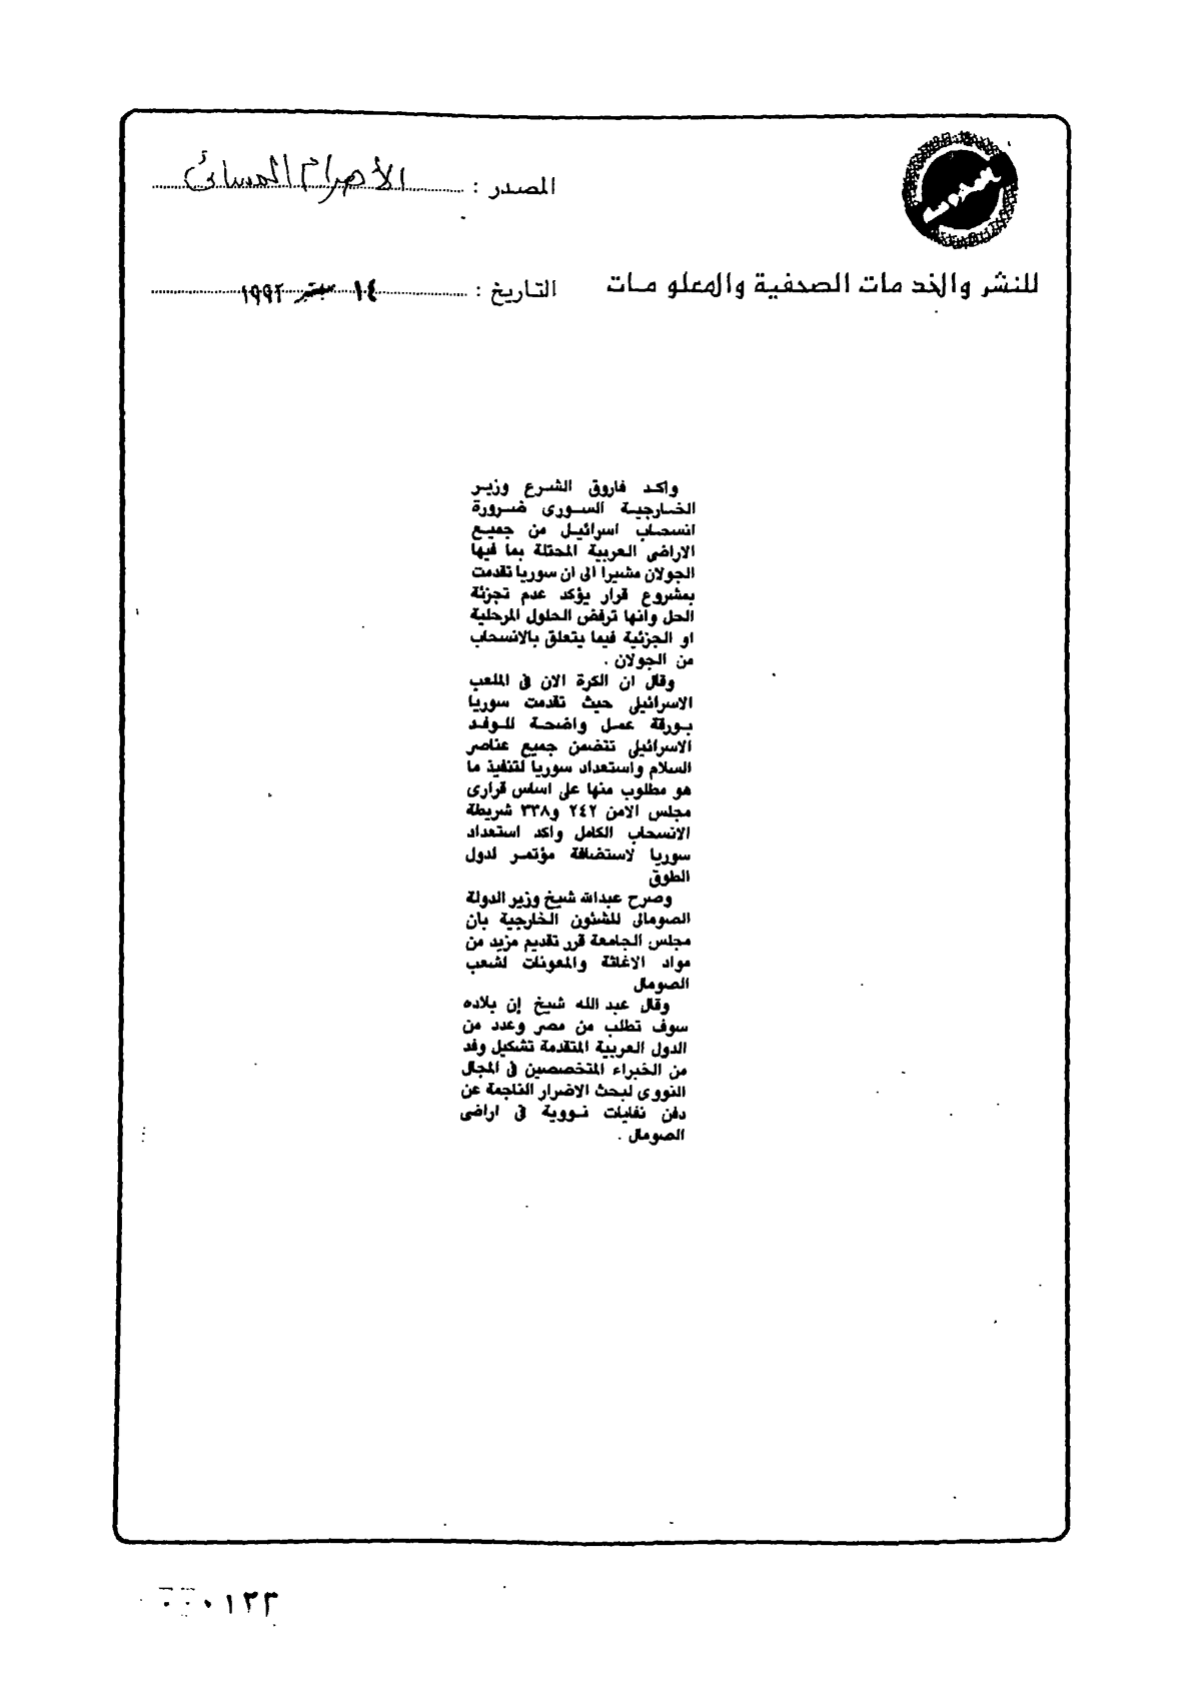 المصدر : الأهرام المسائى
للنشر والخدمات الصحفية والمعلومات
التاريخ : ١٤ سبتمبر ١٩٩٢
واكد فاروق الشرع وزير
الخارجية السورى ضرورة
انسحاب اسرائيل من جميع
الاراضى العربية المحتلة بما فيها
الجولان مشيرا الى ان سوريا تقدمت
بمشروع قرار يؤكد عدم تجزئة
الحل وانها ترفض الحلول المرحلية
او الجزئية فيما يتعلق بالانسحاب
من الجولان .
وقال ان الكرة الان فى الملعب
الاسرائيلى حيث تقدمت سوريا
بورقة عمل واضحة للوفد
الاسرائيلى تتضمن جميع عناصر
السلام واستعداد سوريا لتنفيذ ما
هو مطلوب منها على اساس قرارى
مجلس الامن ٢٤٢ و٣٣٨ شريطة
الانسحاب الكامل واكد استعداد
سوريا لاستضافة مؤتمر لدول
الطوق
وصرح عبدالله شيخ وزير الدولة
الصومالى للشئون الخارجية بان
مجلس الجامعة قرر تقديم مزيد من
مواد الاغاثة والمعونات لشعب
الصومال
وقال عبد الله شيخ إن بلاده
سوف تطلب من مصر وعدد من
الدول العربية المتقدمة تشكيل وفد
من الخبراء المتخصصين فى المجال
النووى لبحث الاضرار الناجمة عن
دفن نفايات نووية فى اراضى
الصومال .
٠١٢٣